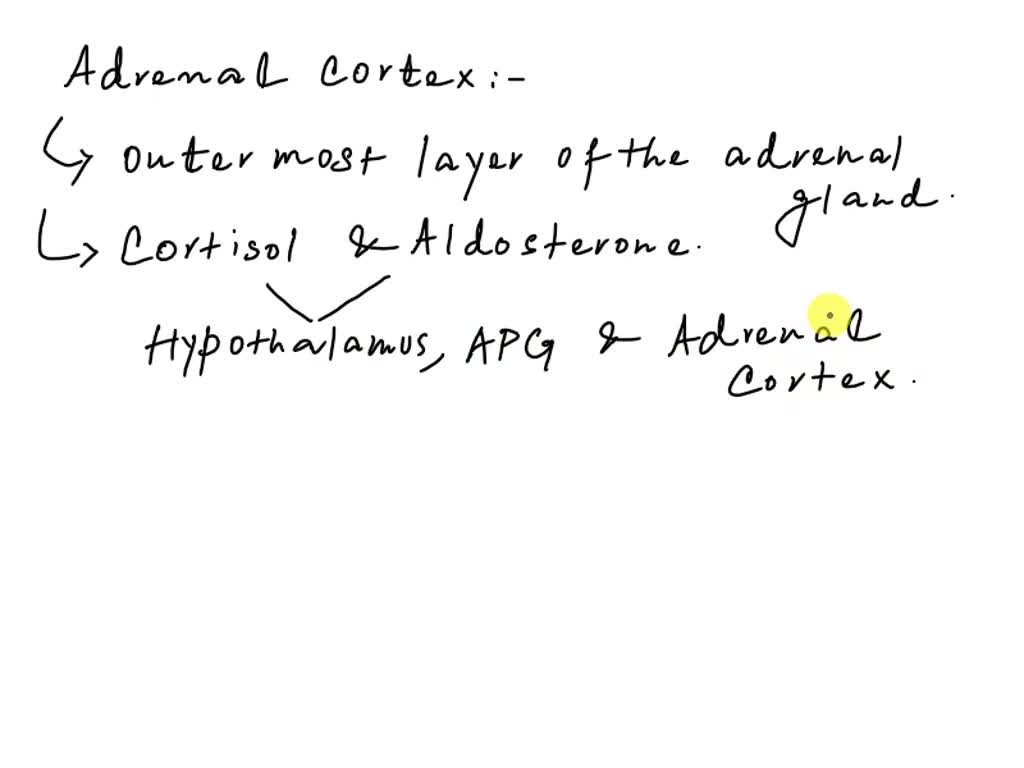 Adrenal cortex:-
↳ outer most layer of the adrenal
gland.
↳ Cortisol & Aldosterone.
Hypothalamus, APG & Adrenal
Cortex.